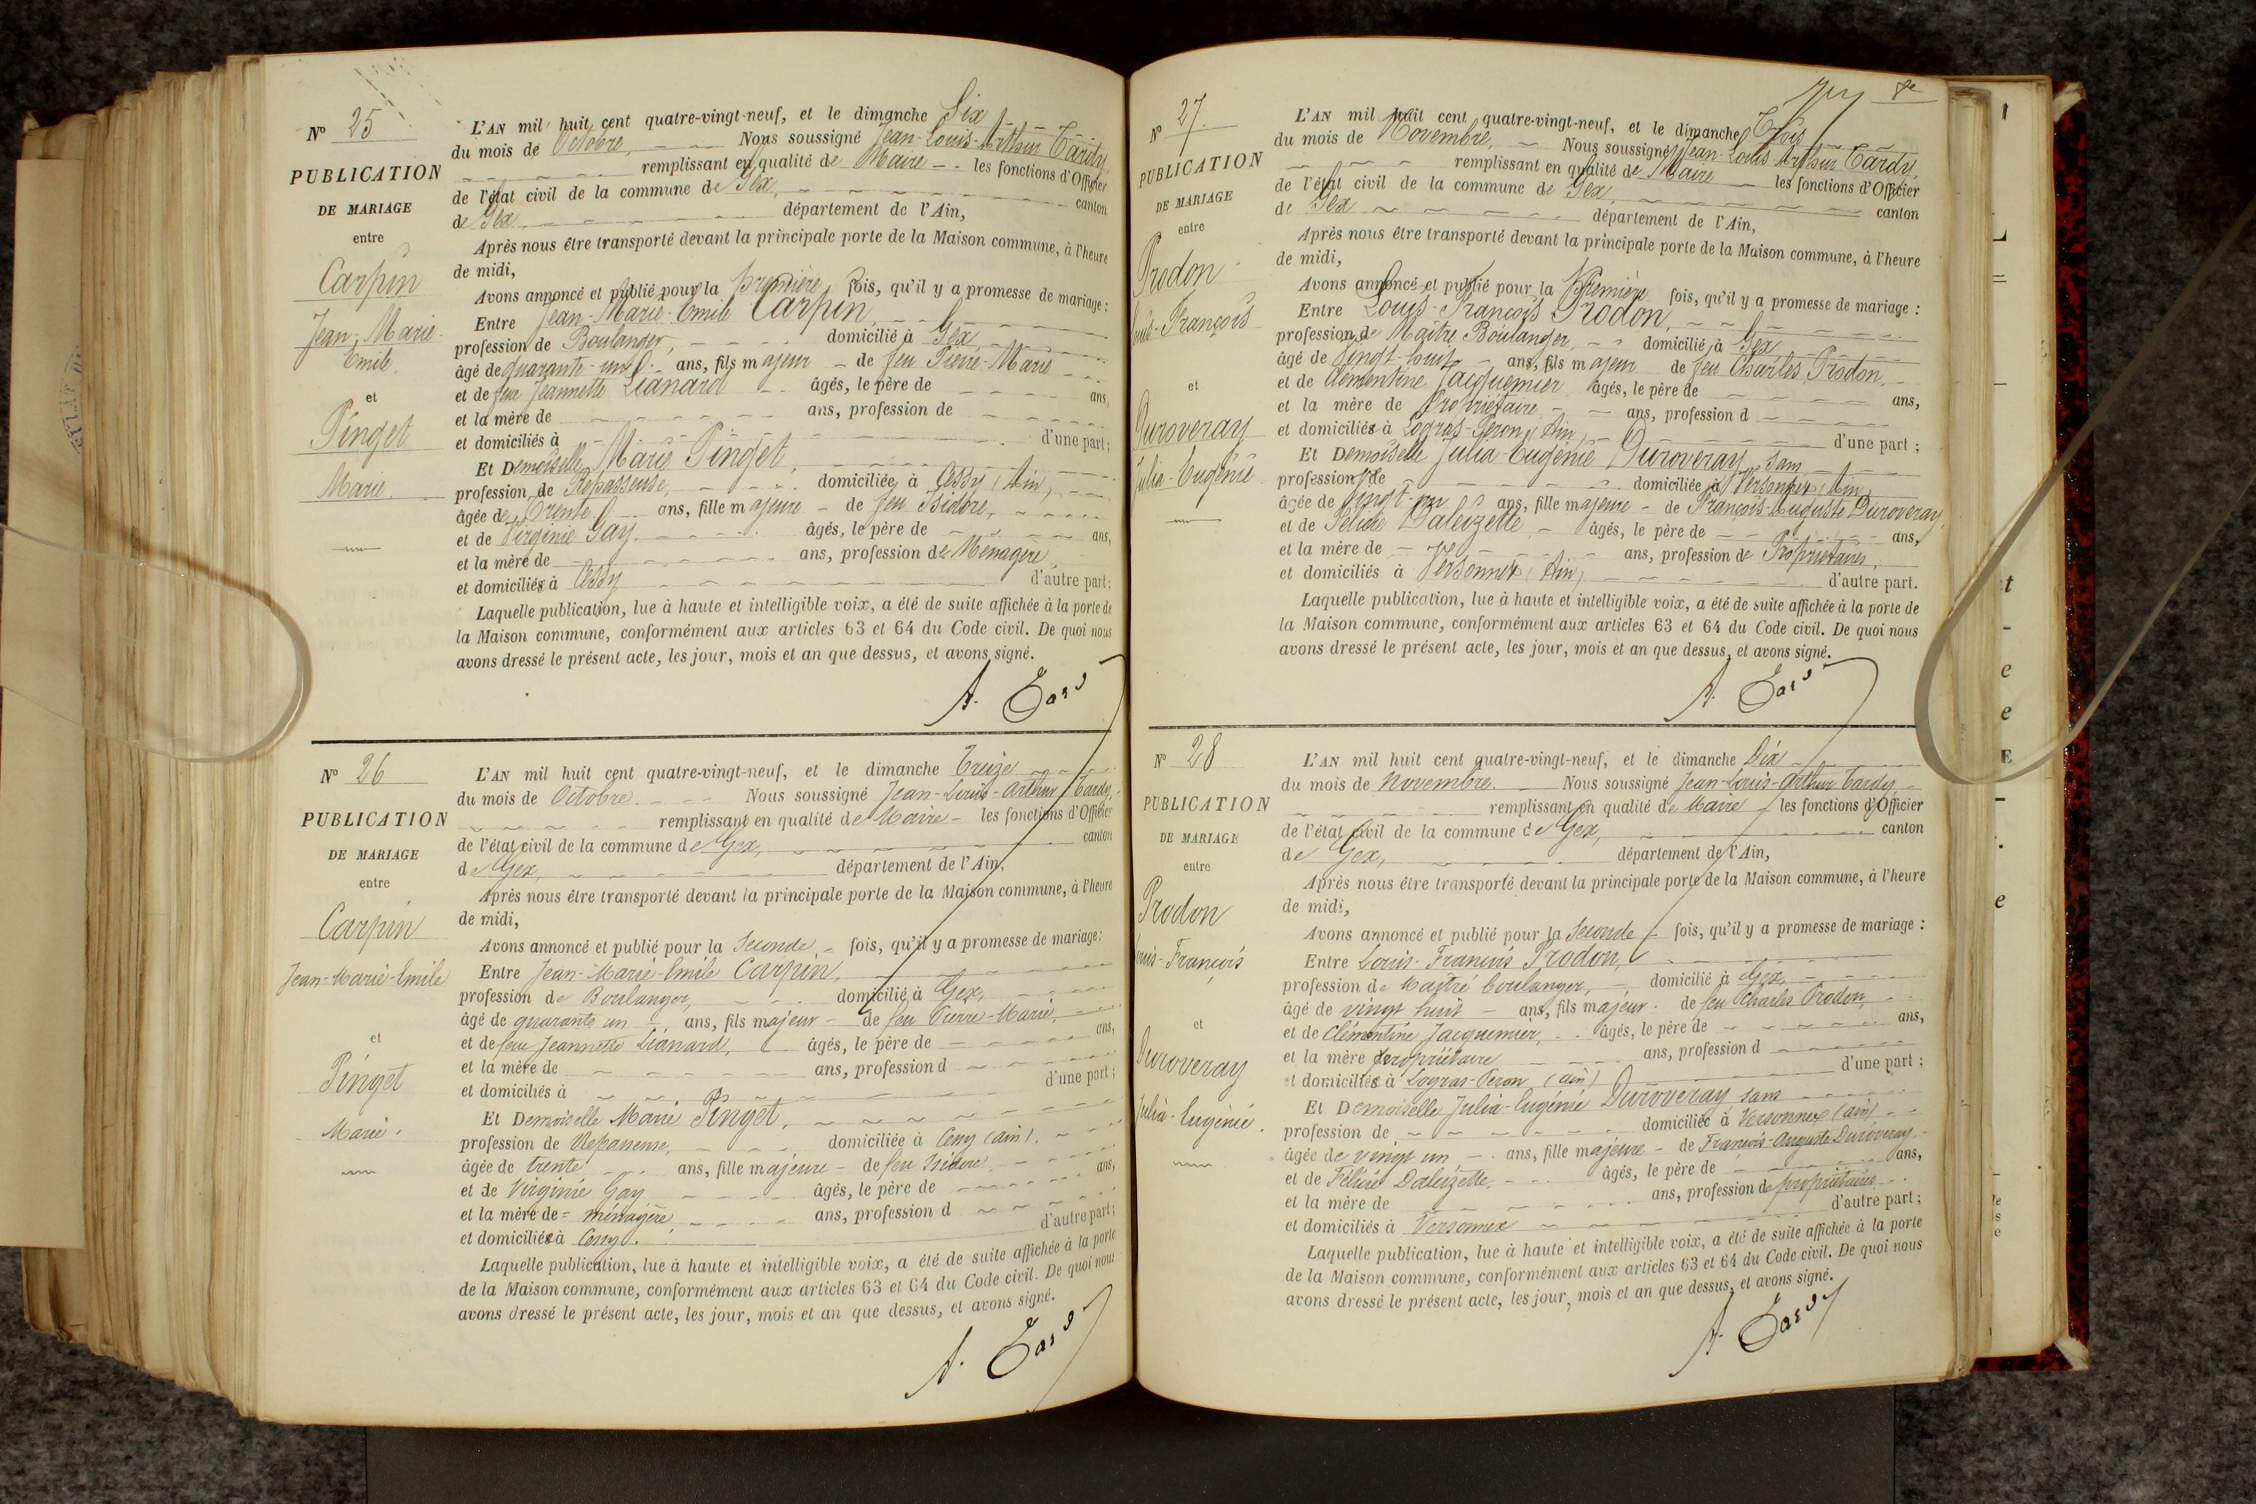 N° 25
PUBLICATION
DE MARIAGE
entre
Carpin
Jean-Marie-
Emile.
et
Pinget
Marie.
L'AN mil huit cent quatre-vingt-neuf, et le dimanche Six
du mois de Octobre, Nous soussigné Jean-Louis-Arthur Tardy,
remplissant en qualité de Maire les fonctions d'Officier
de l'état civil de la commune de Gex, canton
de Gex département de l'Ain,
Après nous être transporté devant la principale porte de la Maison commune, à l'heure
de midi,
Avons annoncé et publié pour la première fois, qu'il y a promesse de mariage :
Entre Jean-Marie-Emile Carpin,
profession de Boulanger, domicilié à Gex,
âgé de quarante-un ans, fils majeur de feu Pierre-Marie
et de feu Jeannette Lianard âgés, le père de ans,
et la mère de ans, profession de
et domiciliés à d'une part ;
Et Demoiselle Marie Pinget,
profession de Repasseuse, domiciliée à Cessy (Ain),
âgée de Trente ans, fille majeure de feu Isidore,
et de Virginie Gay âgés, le père de ans,
et la mère de ans, profession de Ménagère,
et domiciliés à Cessy d'autre part ;
Laquelle publication, lue à haute et intelligible voix, a été de suite affichée à la porte de
la Maison commune, conformément aux articles 63 et 64 du Code civil. De quoi nous
avons dressé le présent acte, les jour, mois et an que dessus, et avons signé.
A. Tardy
N° 26
PUBLICATION
DE MARIAGE
entre
Carpin
Jean-Marie-Emile
et
Pinget
Marie.
L'AN mil huit cent quatre-vingt-neuf, et le dimanche Treize
du mois de Octobre. Nous soussigné Jean-Louis-Arthur Tardy,
remplissant en qualité de Maire les fonctions d'Officier
de l'état civil de la commune de Gex, canton
de Gex, département de l'Ain,
Après nous être transporté devant la principale porte de la Maison commune, à l'heure
de midi,
Avons annoncé et publié pour la Seconde fois, qu'il y a promesse de mariage :
Entre Jean-Marie-Emile Carpin,
profession de Boulanger, domicilié à Gex,
âgé de quarante un ans, fils majeur de feu Pierre-Marie,
et de feu Jeannette Lianard, âgés, le père de ans,
et la mère de ans, profession d
et domiciliés à d'une part ;
Et Demoiselle Marie Pinget,
profession de Repasseuse, domiciliée à Cessy (ain).
âgée de trente ans, fille majeure de feu Isidore,
et de Virginie Gay âgés, le père de ans,
et la mère de = ménagère, ans, profession d
et domiciliés à Cessy. d'autre part ;
Laquelle publication, lue à haute et intelligible voix, a été de suite affichée à la porte
de la Maison commune, conformément aux articles 63 et 64 du Code civil. De quoi nous
avons dressé le présent acte, les jour, mois et an que dessus, et avons signé.
A. Tardy
8e
N° 27
PUBLICATION
DE MARIAGE
entre
Prodon
Louis-François
et
Duroveray
Julia-Eugénie
L'AN mil huit cent quatre-vingt-neuf, et le dimanche Trois
du mois de Novembre, Nous soussigné Jean-Louis-Arthur Tardy,
remplissant en qualité de Maire les fonctions d'Officier
de l'état civil de la commune de Gex, canton
de Gex département de l'Ain,
Après nous être transporté devant la principale porte de la Maison commune, à l'heure
de midi,
Avons annoncé et publié pour la Première fois, qu'il y a promesse de mariage :
Entre Louis-François Prodon,
profession de Maître Boulanger, domicilié à Gex
âgé de Vingt-huit ans, fils majeur de feu Charles Prodon,
et de Clémentine Jacquemier âgés, le père de ans,
et la mère de Propriétaire ans, profession d
et domiciliés à Logras-Péron, (Ain) d'une part ;
Et Demoiselle Julia-Eugénie Duroveray, sans
profession de domiciliée à Versonnex, (Ain)
âgée de Vingt-un ans, fille majeure de François-Auguste Duroveray,
et de Félicie Daleizette âgés, le père de ans,
et la mère de ans, profession de Propriétaires,
et domiciliés à Versonnex, (Ain) d'autre part.
Laquelle publication, lue à haute et intelligible voix, a été de suite affichée à la porte de
la Maison commune, conformément aux articles 63 et 64 du Code civil. De quoi nous
avons dressé le présent acte, les jour, mois et an que dessus, et avons signé.
A. Tardy
N° 28
PUBLICATION
DE MARIAGE
entre
Prodon
Louis-François
et
Duroveray
Julia-Eugénie.
L'AN mil huit cent quatre-vingt-neuf, et le dimanche Dix
du mois de Novembre. Nous soussigné Jean-Louis-Arthur Tardy,
remplissant en qualité de Maire les fonctions d'Officier
de l'état civil de la commune de Gex, canton
de Gex, département de l'Ain,
Après nous être transporté devant la principale porte de la Maison commune, à l'heure
de midi,
Avons annoncé et publié pour la Seconde fois, qu'il y a promesse de mariage :
Entre Louis-François Prodon,
profession de Maître boulanger, domicilié à Gex,
âgé de vingt huit ans, fils majeur de feu Charles Prodon,
et de Clémentine Jacquemier, âgés, le père de ans,
et la mère propriétaire ans, profession d
et domiciliés à Logras-Péron (ain) d'une part ;
Et Demoiselle Julia-Eugénie Duroveray sans
profession de domiciliée à Versonnex (ain)
âgée de vingt un ans, fille majeure de François-Auguste Duroveray,
et de Félicie Daleizette, âgés, le père de ans,
et la mère de ans, profession de propriétaires
et domiciliés à Versonnex d'autre part ;
Laquelle publication, lue à haute et intelligible voix, a été de suite affichée à la porte
de la Maison commune, conformément aux articles 63 et 64 du Code civil. De quoi nous
avons dressé le présent acte, les jour, mois et an que dessus, et avons signé.
A. Tardy